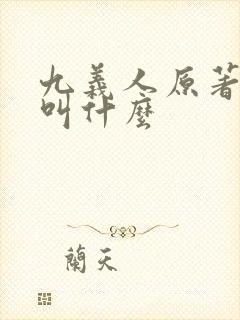 九義人原著
叫什麼
蘭天